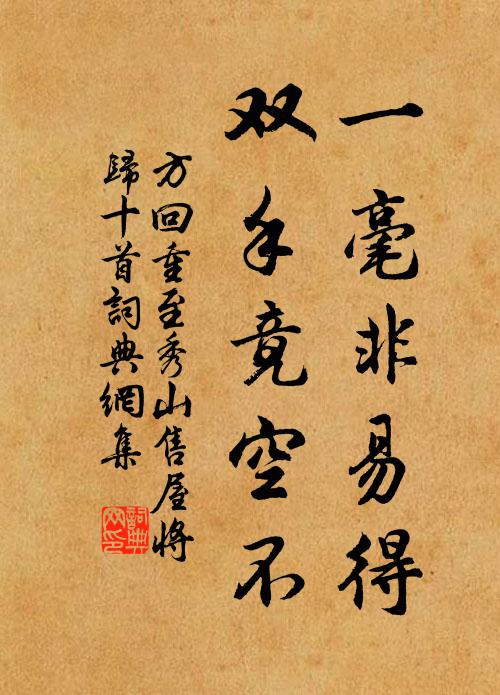 一毫非易得
双手竟空不
方回重至秀山售屋将
歸十首詞典網集
詞典网印